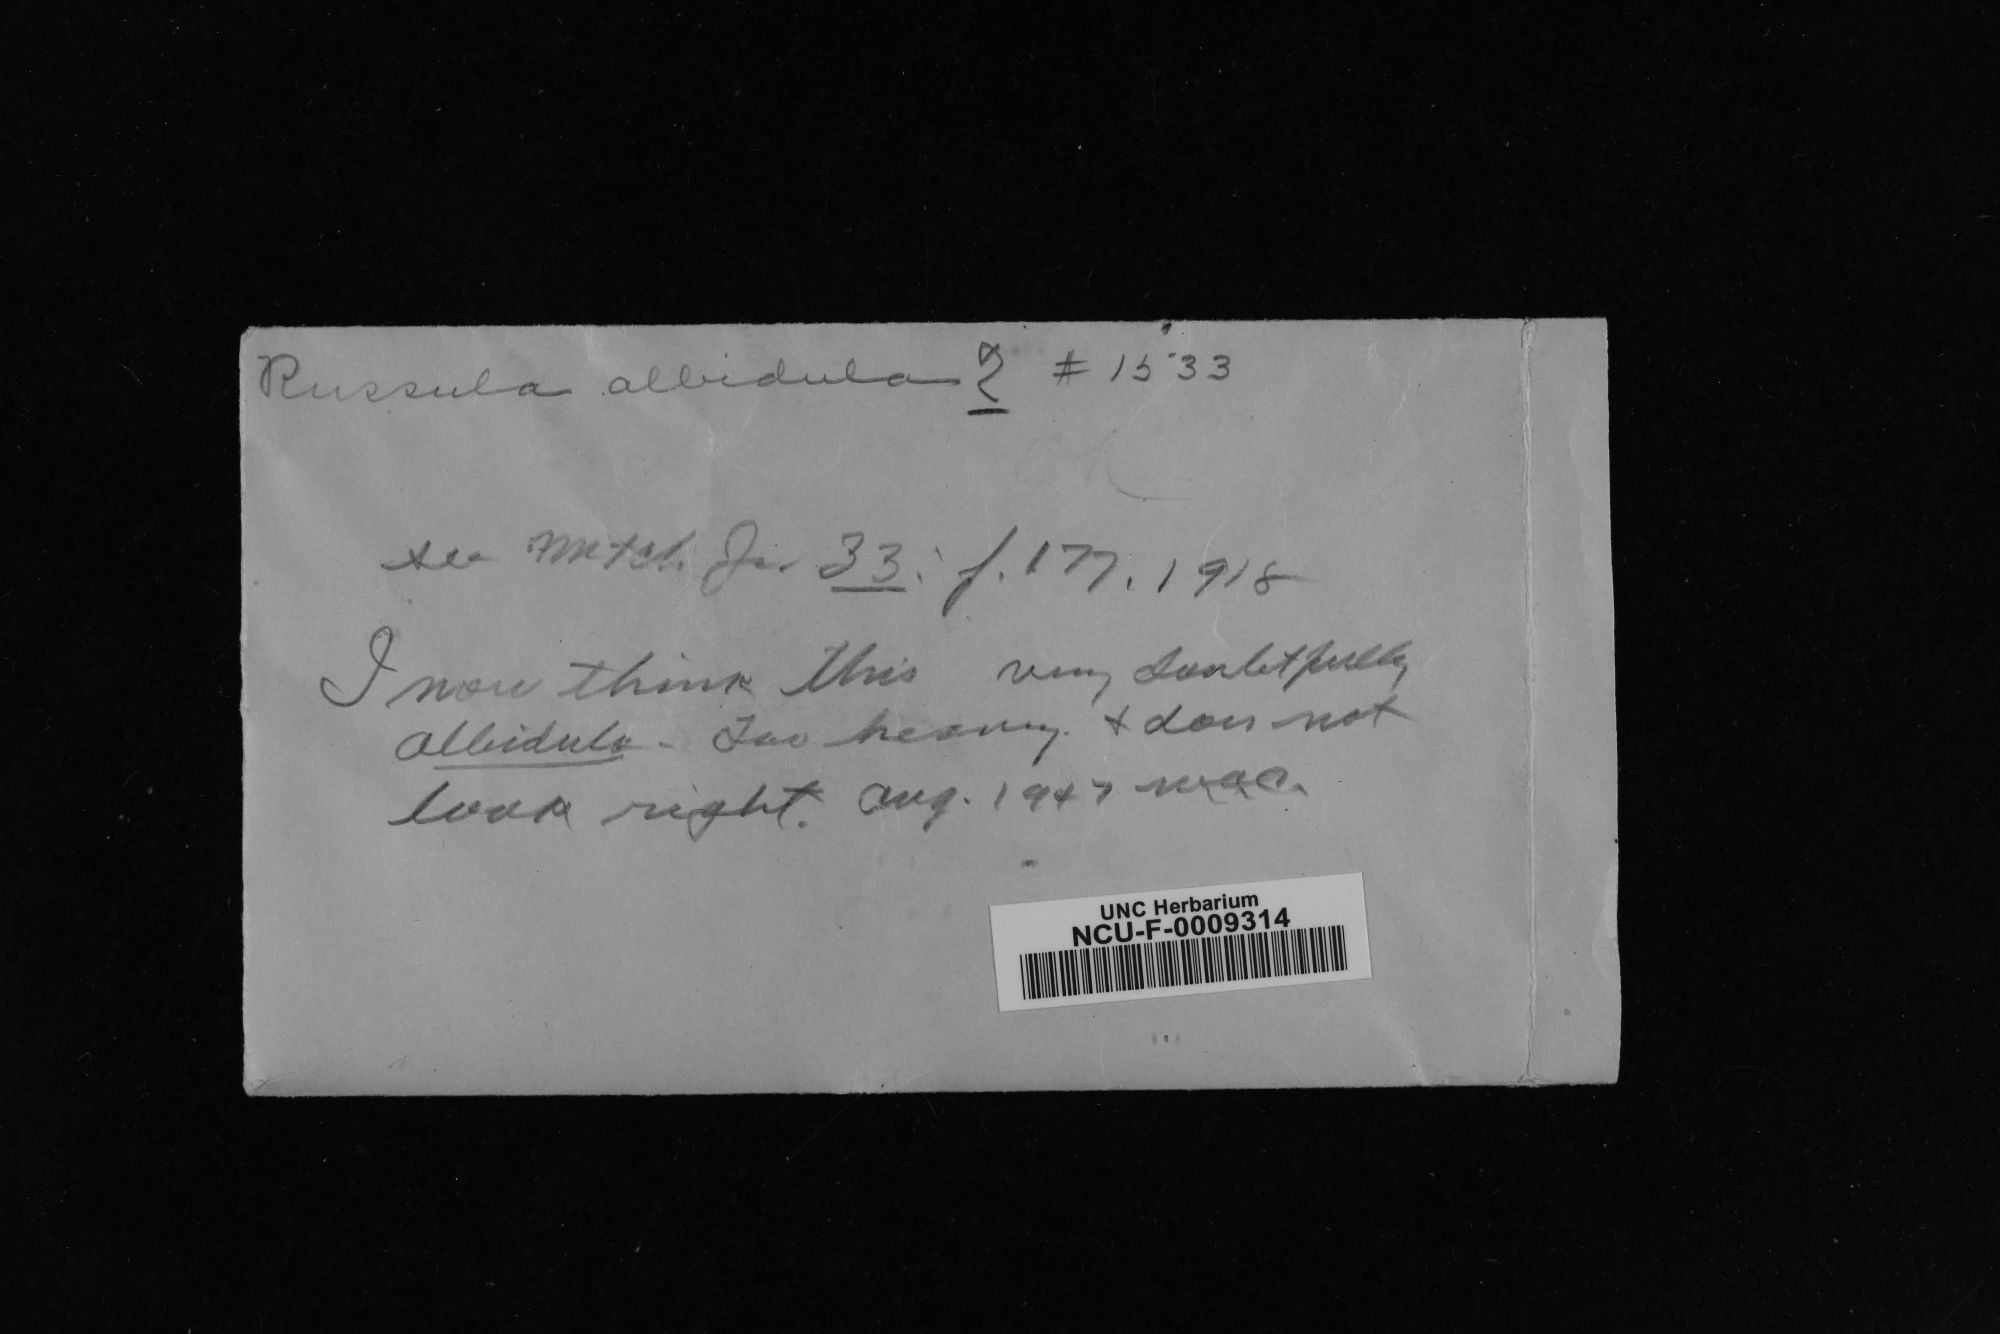 Russula albidula ? # 1533
see Mitch. Jr. 33: p. 177. 1918
I now think this very doubtfully
albidula - Too heavy & does not
look right. Aug. 1947 WCC.
UNC Herbarium
NCU-F-0009314